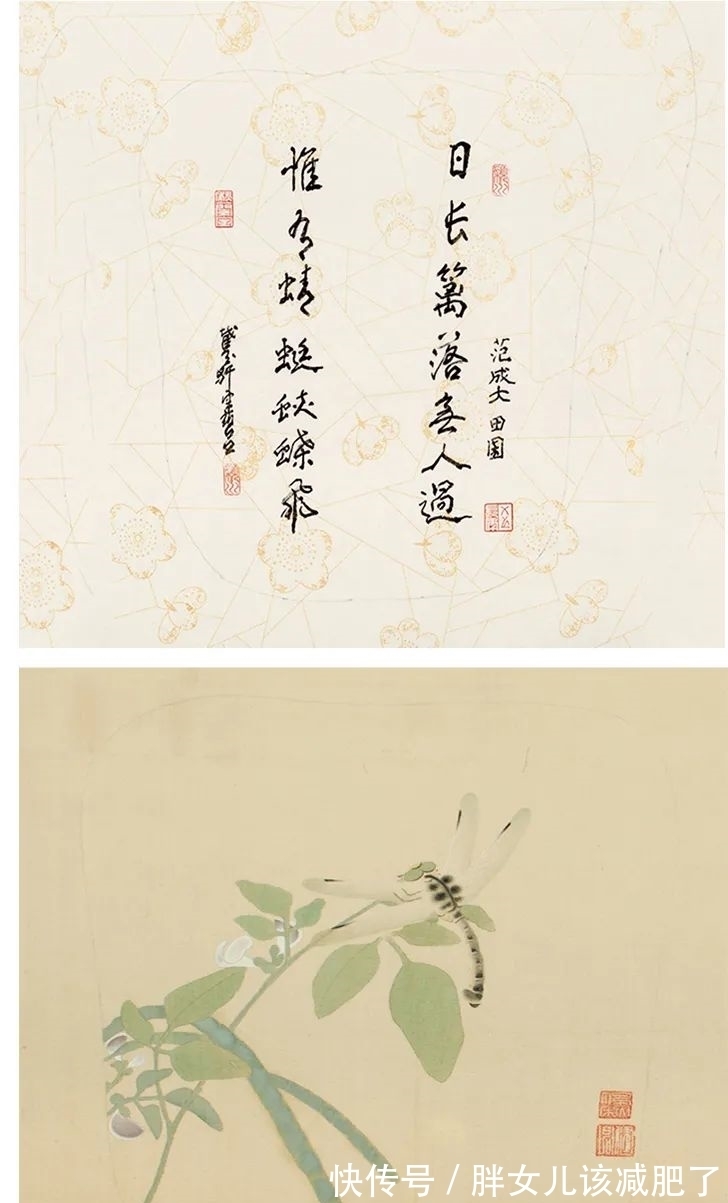 日长篱落无人过
范成大 田园
惟有蜻蜓蛱蝶飞
快传号 / 胖女儿该减肥了